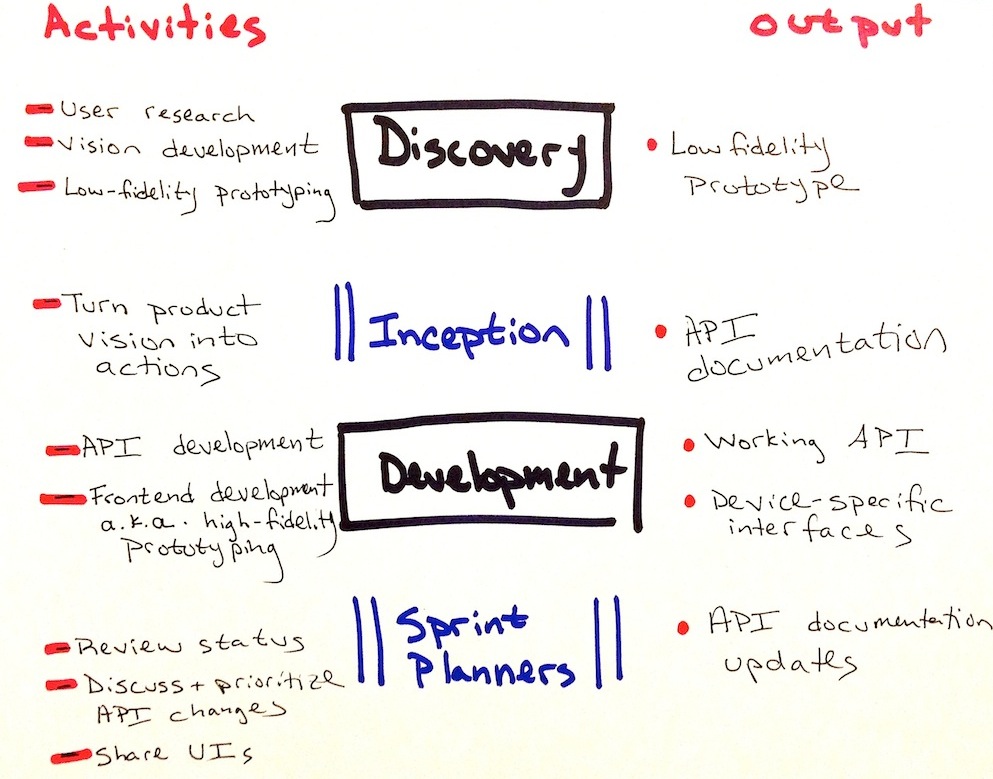 Activities
output
User research
Vision development
Low-fidelity prototyping
Discovery
Low fidelity
Prototype
Turn product
vision into
actions
Inception
API
documentation
API development
Frontend development
a.k.a. high-fidelity
Prototyping
Development
Working API
Device-specific
interfaces
Review status
Discuss + prioritize
API changes
Share UIs
Sprint
Planners
API documentation
updates